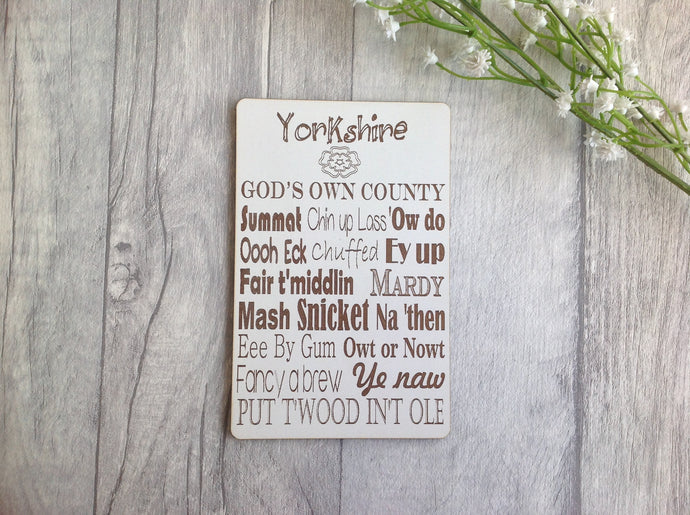 Yorkshire
GOD'S OWN COUNTY
Summat Chin up Lass 'Ow do
Oooh Eck Chuffed Ey up
Fair t'middlin MARDY
Mash Snicket Na 'then
Eee By Gum Owt or Nowt
Fancy a brew Ye naw
PUT T'WOOD IN'T OLE